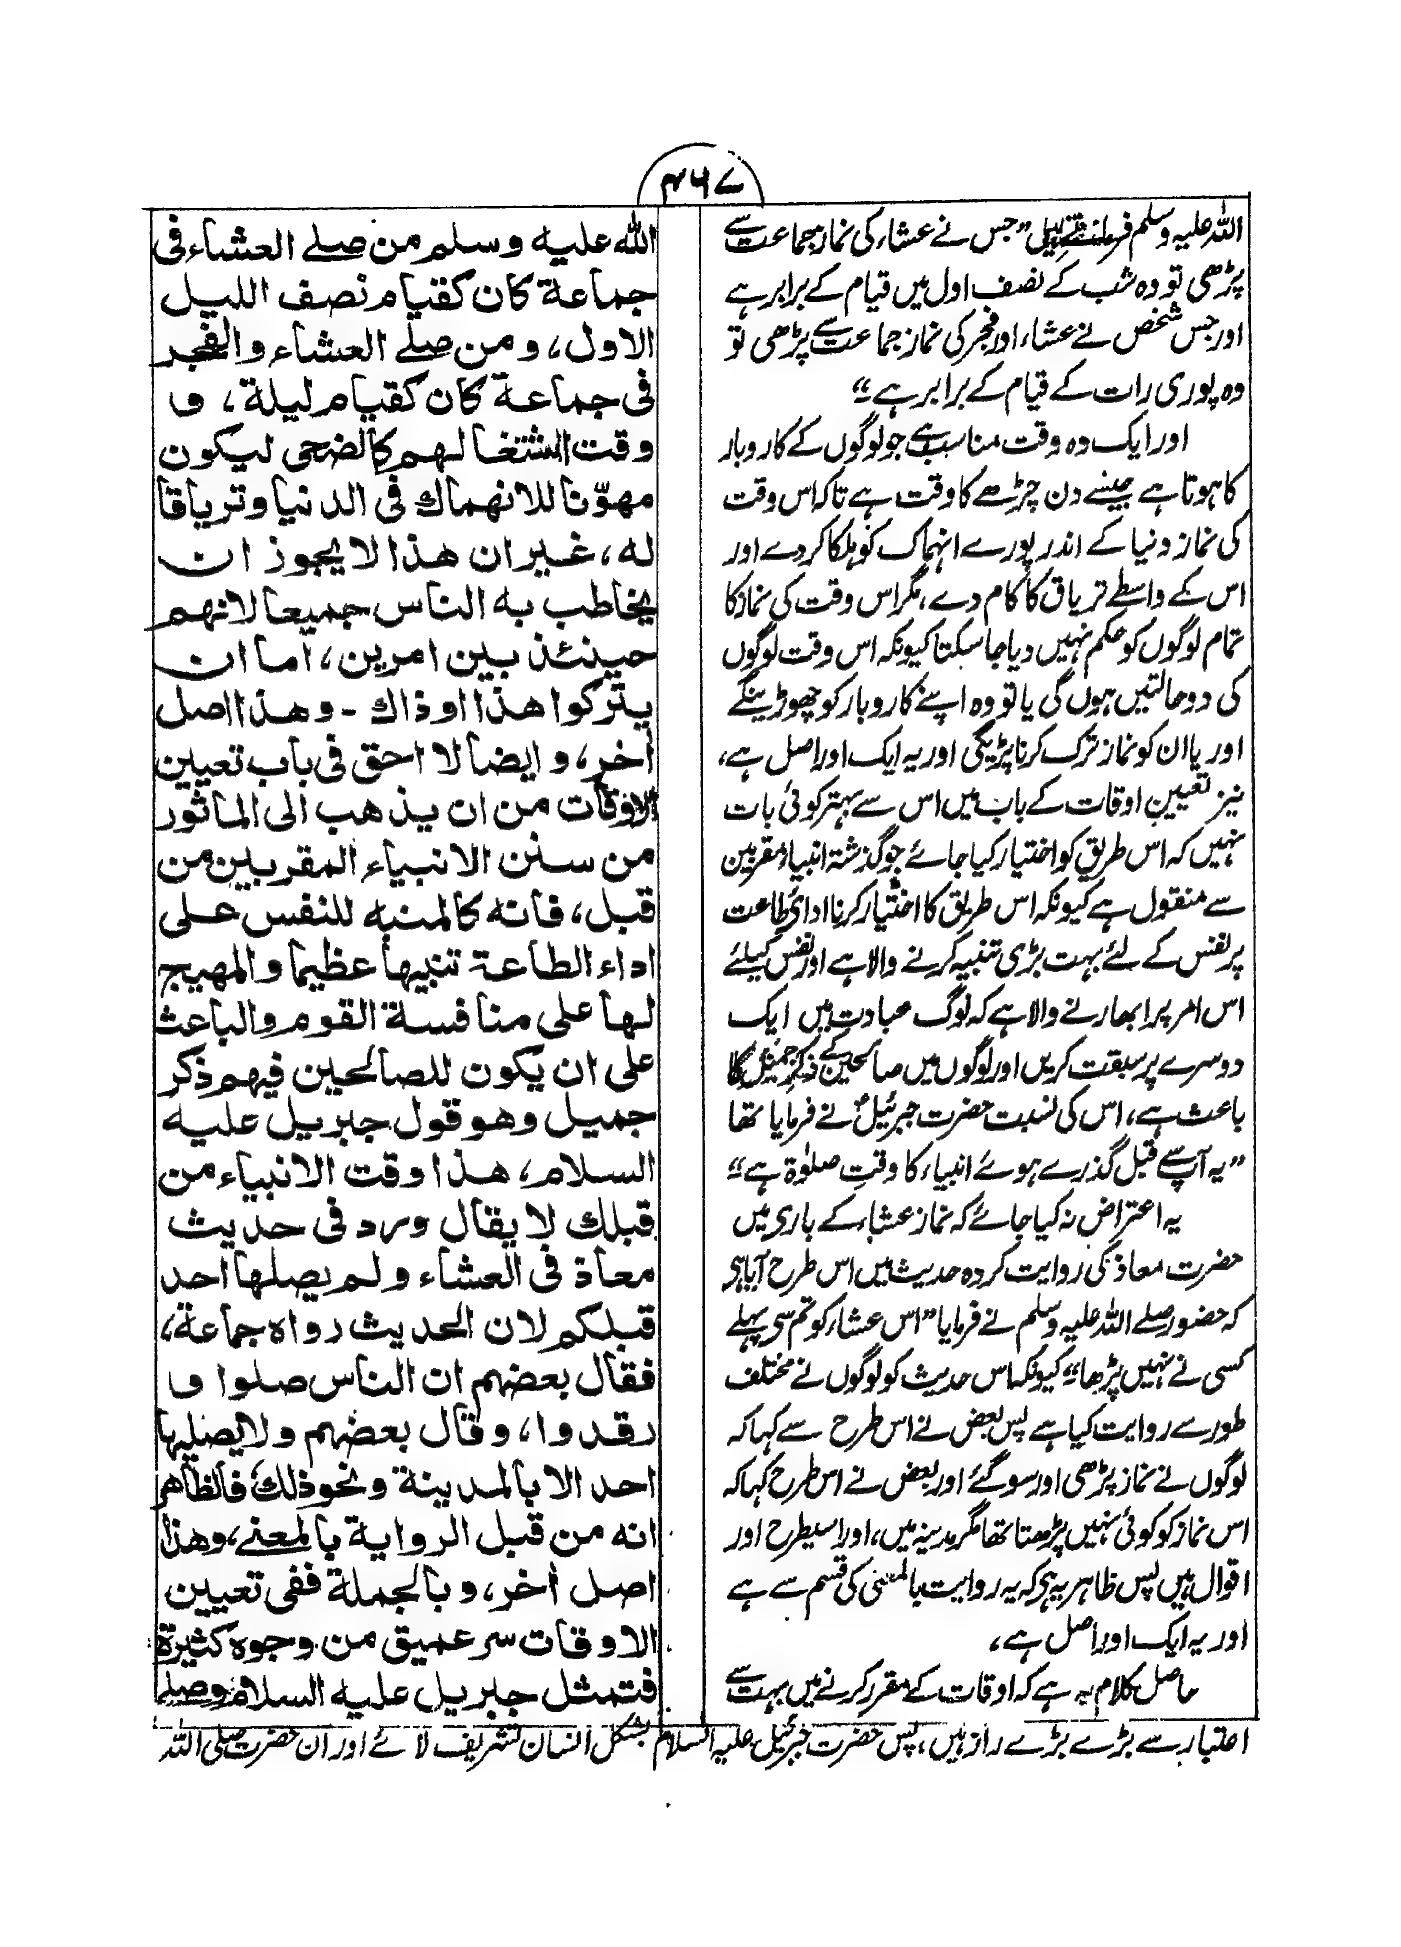 ۴۶۷
اللہ علیہ وسلم فرماتے ہیں "جس نے عشاء کی نماز جماعت سے
پڑھی تو وہ شب کے نصف اول میں قیام کے برابر ہے
اور جس شخص نے عشاء اور فجر کی نماز جماعت سے پڑھی تو
وہ پوری رات کے قیام کے برابر ہے"
اور ایک وہ وقت مناسب ہے جو لوگوں کے کاروبار
کا ہوتا ہے جیسے دن چڑھے کا وقت ہے تاکہ اس وقت
کی نماز دنیا کے اندر پورے انہماک کو ہلکا کر دے اور
اس کے واسطے تریاق کا کام دے، مگر اس وقت کی نماز کا
تمام لوگوں کو حکم نہیں دیا جا سکتا کیونکہ اس وقت لوگوں
کی دو حالتیں ہوں گی یا تو وہ اپنے کاروبار کو چھوڑینگے
اور یا ان کو نماز ترک کرنا پڑیگی اور یہ ایک اور اصل ہے،
نیز تعیین اوقات کے باب میں اس سے بہتر کوئی بات
نہیں کہ اس طریق کو اختیار کیا جائے جو گذشتہ انبیاء مقربین
سے منقول ہے کیونکہ اس طریق کا اختیار کرنا ادائ طاعت
پر نفس کے لئے بہت بڑی تنبیہ کرنے والا ہے اور نفس کیلئے
اس امر پر ابھارنے والا ہے کہ لوگ عبادت میں ایک
دوسرے پر سبقت کریں اور لوگوں میں صالحین کے ذکر جمیل کا
باعث ہے، اس کی نسبت حضرت جبرئیلؑ نے فرمایا تھا
"یہ آپ سے قبل گذرے ہوئے انبیاء کا وقت صلوٰۃ ہے"
یہ اعتراض نہ کیا جائے کہ نماز عشاء کے باری میں
حضرت معاذ کی روایت کردہ حدیث میں اس طرح آیا ہی
کہ حضور صلے اللہ علیہ وسلم نے فرمایا "اس عشاء کو تم سی پہلے
کسی نے نہیں پڑھا" کیونکہ اس حدیث کو لوگوں نے مختلف
طور سے روایت کیا ہے پس بعض نے اس طرح سے کہا کہ
لوگوں نے نماز پڑھی اور سو گئے اور بعض نے اس طرح کہا کہ
اس نماز کو کوئی نہیں پڑھتا تھا مگر مدینہ میں، اور اسیطرح اور
اقوال ہیں پس ظاہر یہ ہی کہ یہ روایت بالمعنی کی قسم سے ہے
اور یہ ایک اور اصل ہے،
حاصل کلام یہ ہے کہ اوقات کے مقرر کرنے میں بہت سے
الله عليه وسلم من صلے العشاء فی
جماعة كان كقيام نصف الليل
الاول، ومن صلے العشاء والفجر
فی جماعة كان كقيام ليلة، و
وقت اشتغالهم كالضحى ليكون
مهوّنا للانهماك فی الدنيا وترياقا
له، غير ان هذا لا يجوز ان
يخاطب به الناس جميعا لانهم
حينئذ بين امرين، اما ان
يتركوا هذا او ذاك - وهذا اصل
أخر، وايضا لا احق فی باب تعيين
الاوقات من ان يذهب الى المأثور
من سنن الانبياء المقربين من
قبل، فانه كالمنبه للنفس على
اداء الطاعة تنبيهاً عظيما والمهيج
لها على منافسة القوم والباعث
على ان يكون للصالحين فيهم ذكر
جميل وهو قول جبريل عليه
السلام، هذا وقت الانبياء من
قبلك لا يقال ورد فی حديث
معاذ فی العشاء ولم يصلها احد
قبلكم لان الحديث رواه جماعة،
فقال بعضهم ان الناس صلوا و
رقدوا، وقال بعضهم ولا يصليها
احد الا بالمدينة ونحو ذلك فالظاهر
انه من قبل الرواية بالمعنے، وهذا
اصل أخر، وبالجملة ففی تعيين
الاوقات سر عميق من وجوه كثيرة
فتمثل جبريل عليه السلام وصلے
اعتبار سے بڑے بڑے راز ہیں، پس حضرت جبرئیل علیہ السلام بشکل انسان تشریف لائے اور ان حضرت صلی اللہ